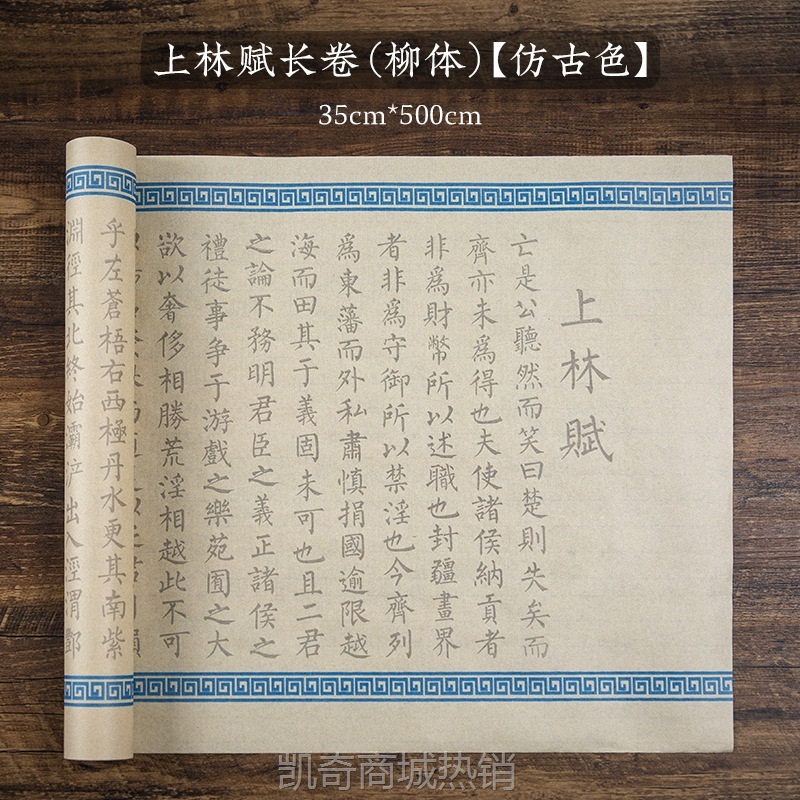 上林赋长卷(柳体)【仿古色】
35cm*500cm
上林賦
亡是公聽然而笑曰楚則失矣而
齊亦未為得也夫使諸侯納貢者
非為財幣所以述職也封疆畫界
者非為守御所以禁淫也今齊列
為東藩而外私肅慎捐國逾限越
海而田其于義固未可也且二君
之論不務明君臣之義正諸侯之
禮徒事争于游戲之樂苑囿之大
欲以奢侈相勝荒淫相越此不可
乎左蒼梧右西極丹水更其南紫
淵徑其北終始灞浐出入涇渭鄷
凯奇商城热销